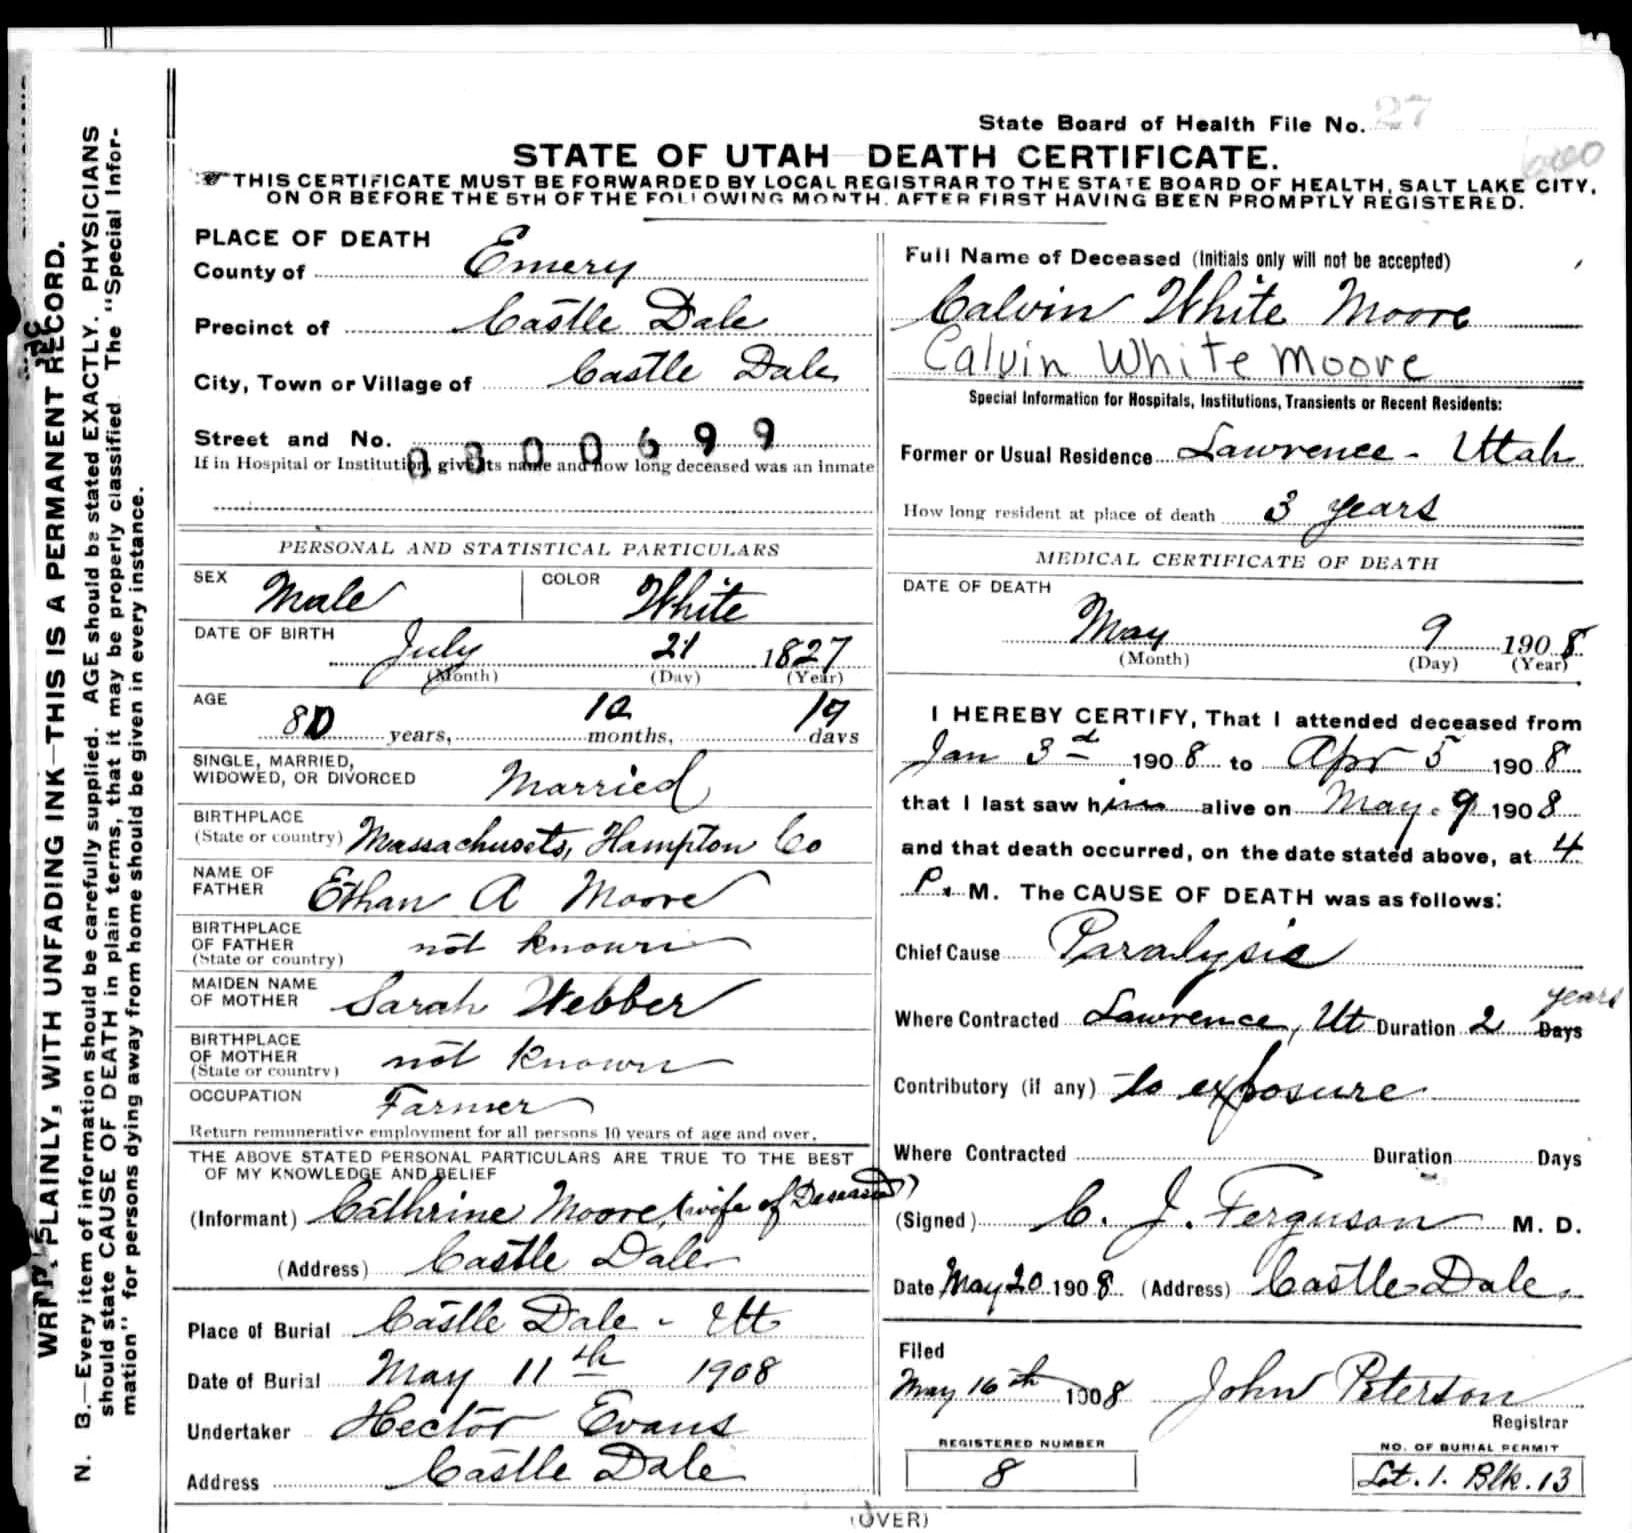 State Board of Health File No. 27
STATE OF UTAH DEATH CERTIFICATE.
THIS CERTIFICATE MUST BE FORWARDED BY LOCAL REGISTRAR TO THE STATE BOARD OF HEALTH, SALT LAKE CITY,
ON OR BEFORE THE 5TH OF THE FOLLOWING MONTH, AFTER FIRST HAVING BEEN PROMPTLY REGISTERED.
WRITE PLAINLY, WITH UNFADING INK—THIS IS A PERMANENT RECORD.
N. B.—Every item of information should be carefully supplied. AGE should be stated EXACTLY. PHYSICIANS
should state CAUSE OF DEATH in plain terms, that it may be properly classified. The "Special Infor-
mation" for persons dying away from home should be given in every instance.
PLACE OF DEATH
County of Emery
Precinct of Castle Dale
City, Town or Village of Castle Dale
Street and No.
0300699
If in Hospital or Institution, give its name and how long deceased was an inmate
PERSONAL AND STATISTICAL PARTICULARS
SEX Male COLOR White
DATE OF BIRTH July 21 1827
(Month) (Day) (Year)
AGE 80 years, 10 months, 19 days
SINGLE, MARRIED,
WIDOWED, OR DIVORCED Married
BIRTHPLACE
(State or country) Massachusets, Hampton Co
NAME OF
FATHER Ethan A Moore
BIRTHPLACE
OF FATHER
(State or country) not known
MAIDEN NAME
OF MOTHER Sarah Webber
BIRTHPLACE
OF MOTHER
(State or country) not known
OCCUPATION Farmer
Return remunerative employment for all persons 10 years of age and over.
THE ABOVE STATED PERSONAL PARTICULARS ARE TRUE TO THE BEST
OF MY KNOWLEDGE AND BELIEF
(Informant) Cathrine Moore, (wife of Deseased)
(Address) Castle Dale
Place of Burial Castle Dale - Ut
Date of Burial May 11th 1908
Undertaker Hector Evans
Address Castle Dale
Full Name of Deceased (Initials only will not be accepted)
Calvin White Moore
Calvin White Moore
Special Information for Hospitals, Institutions, Transients or Recent Residents:
Former or Usual Residence Lawrence - Utah
How long resident at place of death 3 years
MEDICAL CERTIFICATE OF DEATH
DATE OF DEATH
May 9 1908
(Month) (Day) (Year)
I HEREBY CERTIFY, That I attended deceased from
Jan 3d 1908 to Apr 5 1908
that I last saw him alive on May. 9 1908
and that death occurred, on the date stated above, at 4
P. M. The CAUSE OF DEATH was as follows:
Chief Cause Paralysis
Where Contracted Lawrence, Ut Duration 2 Days years
Contributory (if any) to exposure
Where Contracted Duration Days
(Signed) C. J. Ferguson M. D.
Date May 20 1908 (Address) Castle Dale.
Filed
May 16th 1908 John Peterson
Registrar
REGISTERED NUMBER
8
NO. OF BURIAL PERMIT
Lot. 1. Blk. 13
(OVER)